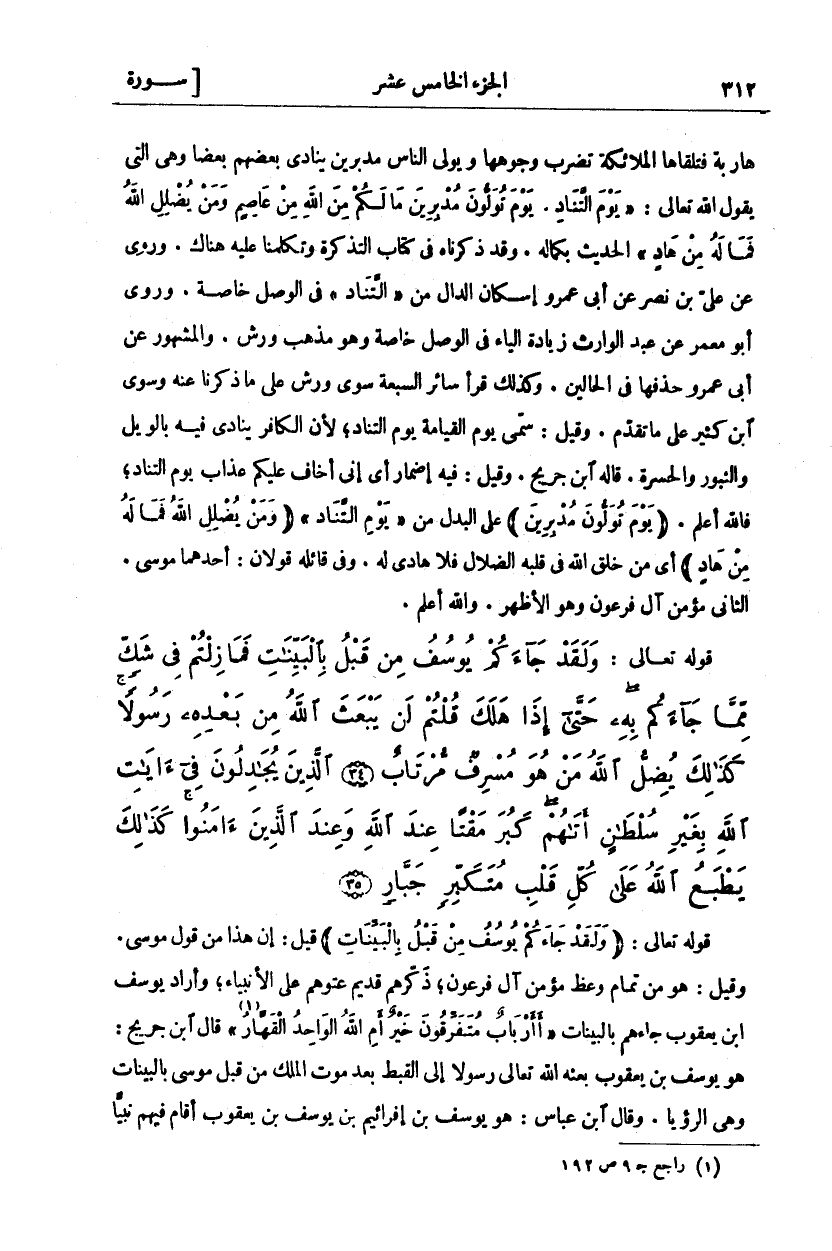 ٣١٢ الجزء الخامس عشر [ سـورة
هاربة فتلقاها الملائكة تضرب وجوهها و يولى الناس مدبرين ينادى بعضهم بعضا وهى التى
يقول الله تعالى : « يَوْمَ التَّنَادِ . يَوْمَ تُوَلُّونَ مُدْبِرِينَ مَا لَكُمْ مِنَ اللهِ مِنْ عَاصِمٍ وَمَنْ يُضْلِلِ اللهُ
فَمَا لَهُ مِنْ هَادٍ » الحديث بكماله . وقد ذكرناه فى كتاب التذكرة وتكلمنا عليه هناك . وروى
عن علىّ بن نصر عن أبى عمرو إسكان الدال من « التَّنَاد » فى الوصل خاصة . وروى
أبو معمر عن عبد الوارث زيادة الياء فى الوصل خاصة وهو مذهب ورش . والمشهور عن
أبى عمرو حذفها فى الحالين . وكذلك قرأ سائر السبعة سوى ورش على ما ذكرنا عنه وسوى
آبن كثير على ما تقدّم . وقيل : سمّى يوم القيامة يوم التناد؛ لأن الكافر ينادى فيـه بالويل
والثبور والحسرة . قاله آبن جريج . وقيل : فيه إضمار أى إنى أخاف عليكم عذاب يوم التناد؛
فالله أعلم . ( يَوْمَ تُوَلُّونَ مُدْبِرِينَ ) على البدل من « يَوْمِ التَّنَاد » ( وَمَنْ يُضْلِلِ اللهُ فَمَـا لَهُ
مِنْ هَادٍ ) أى من خلق الله فى قلبه الضلال فلا هادى له . وفى قائله قولان : أحدهما موسى .
الثانى مؤمن آل فرعون وهو الأظهر . والله أعلم .
قوله تعـالى : وَلَقَدْ جَآءَكُمْ يُوسُفُ مِن قَبْلُ بِٱلْبَيِّنَـٰتِ فَمَا زِلْتُمْ فِى شَكٍّ
مِّمَّا جَآءَكُم بِهِۦ حَتَّىٰٓ إِذَا هَلَكَ قُلْتُمْ لَن يَبْعَثَ ٱللَّهُ مِن بَعْدِهِۦ رَسُولًا
كَذَٰلِكَ يُضِلُّ ٱللَّهُ مَنْ هُوَ مُسْرِفٌ مُّرْتَابٌ ﴿٣٤﴾ ٱلَّذِينَ يُجَـٰدِلُونَ فِىٓ ءَايَـٰتِ
ٱللَّهِ بِغَيْرِ سُلْطَـٰنٍ أَتَىٰهُمْ ۖ كَبُرَ مَقْتًا عِندَ ٱللَّهِ وَعِندَ ٱلَّذِينَ ءَامَنُوا۟ ۚ كَذَٰلِكَ
يَطْبَعُ ٱللَّهُ عَلَىٰ كُلِّ قَلْبِ مُتَكَبِّرٍ جَبَّارٍ ﴿٣٥﴾
قوله تعالى : ( وَلَقَدْ جَاءَكُمْ يُوسُفُ مِنْ قَبْلُ بِالْبَيِّنَاتِ ) قيل : إن هذا من قول موسى .
وقيل : هو من تمام وعظ مؤمن آل فرعون؛ ذكّرهم قديم عتوهم على الأنبياء؛ وأراد يوسف
ابن يعقوب جاءهم بالبينات « أَأَرْبَابٌ مُتَفَرِّقُونَ خَيْرٌ أَمِ اللهُ الْوَاحِدُ الْقَهَّارُ (١) » قال آبن جريج :
هو يوسف بن يعقوب بعثه الله تعالى رسولا إلى القبط بعد موت الملك من قبل موسى بالبينات
وهى الرؤيا . وقال آبن عباس : هو يوسف بن إفرائيم بن يوسف بن يعقوب أقام فيهم نبيًّا
(١) راجع ج ٩ ص ١٩٢